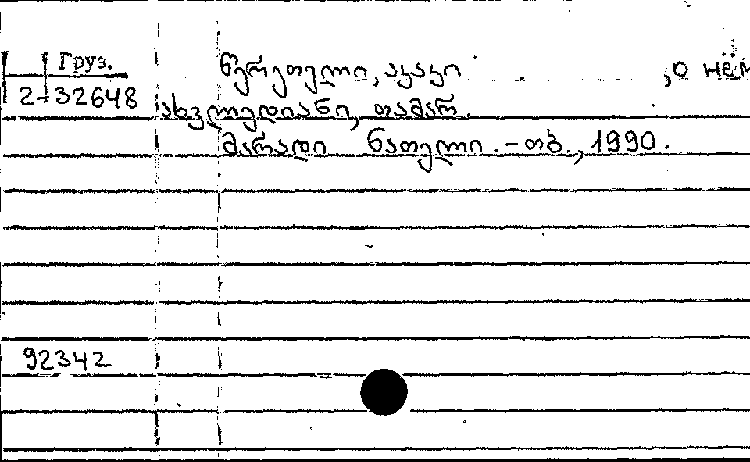 Груз.
2-32648
წერეთელი, აკაკი , о нём
ახვლედიანი, თამარ.
მარადი ნათელი. – თბ., 1990.
92342